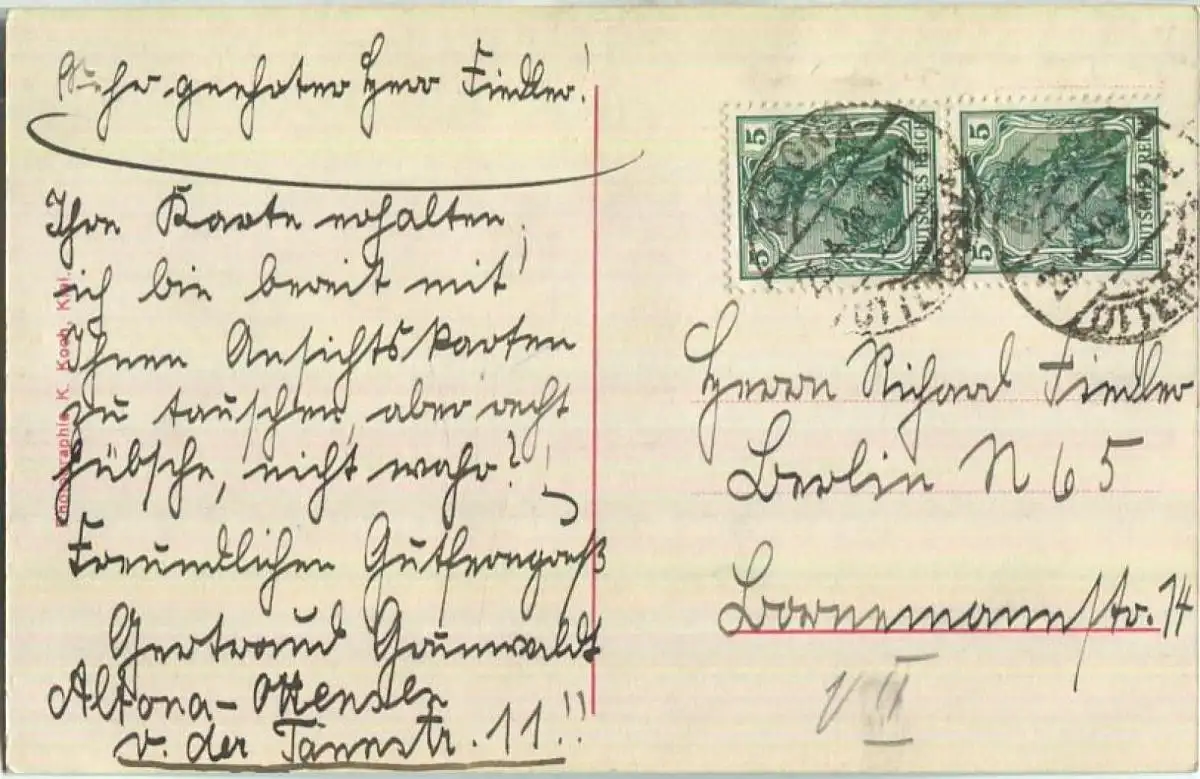 Sehr geehrter Herr Fiedler!
Ihre Karte erhalten,
ich bin bereit mit
Ihnen Ansichtskarten
zu tauschen, aber recht
hübsche, nicht wahr?!
Freundlichen
Gertraud Grunwaldt
Altona-Ottensen
v. der Tannstr. 11!!
Photographie K. Koch, Kiel.
5 DEUTSCHES REICH 5
5 DEUTSCHES REICH 5
ALTONA
Herrn Richard Fiedler
Berlin N 65
Bornemannstr. 14